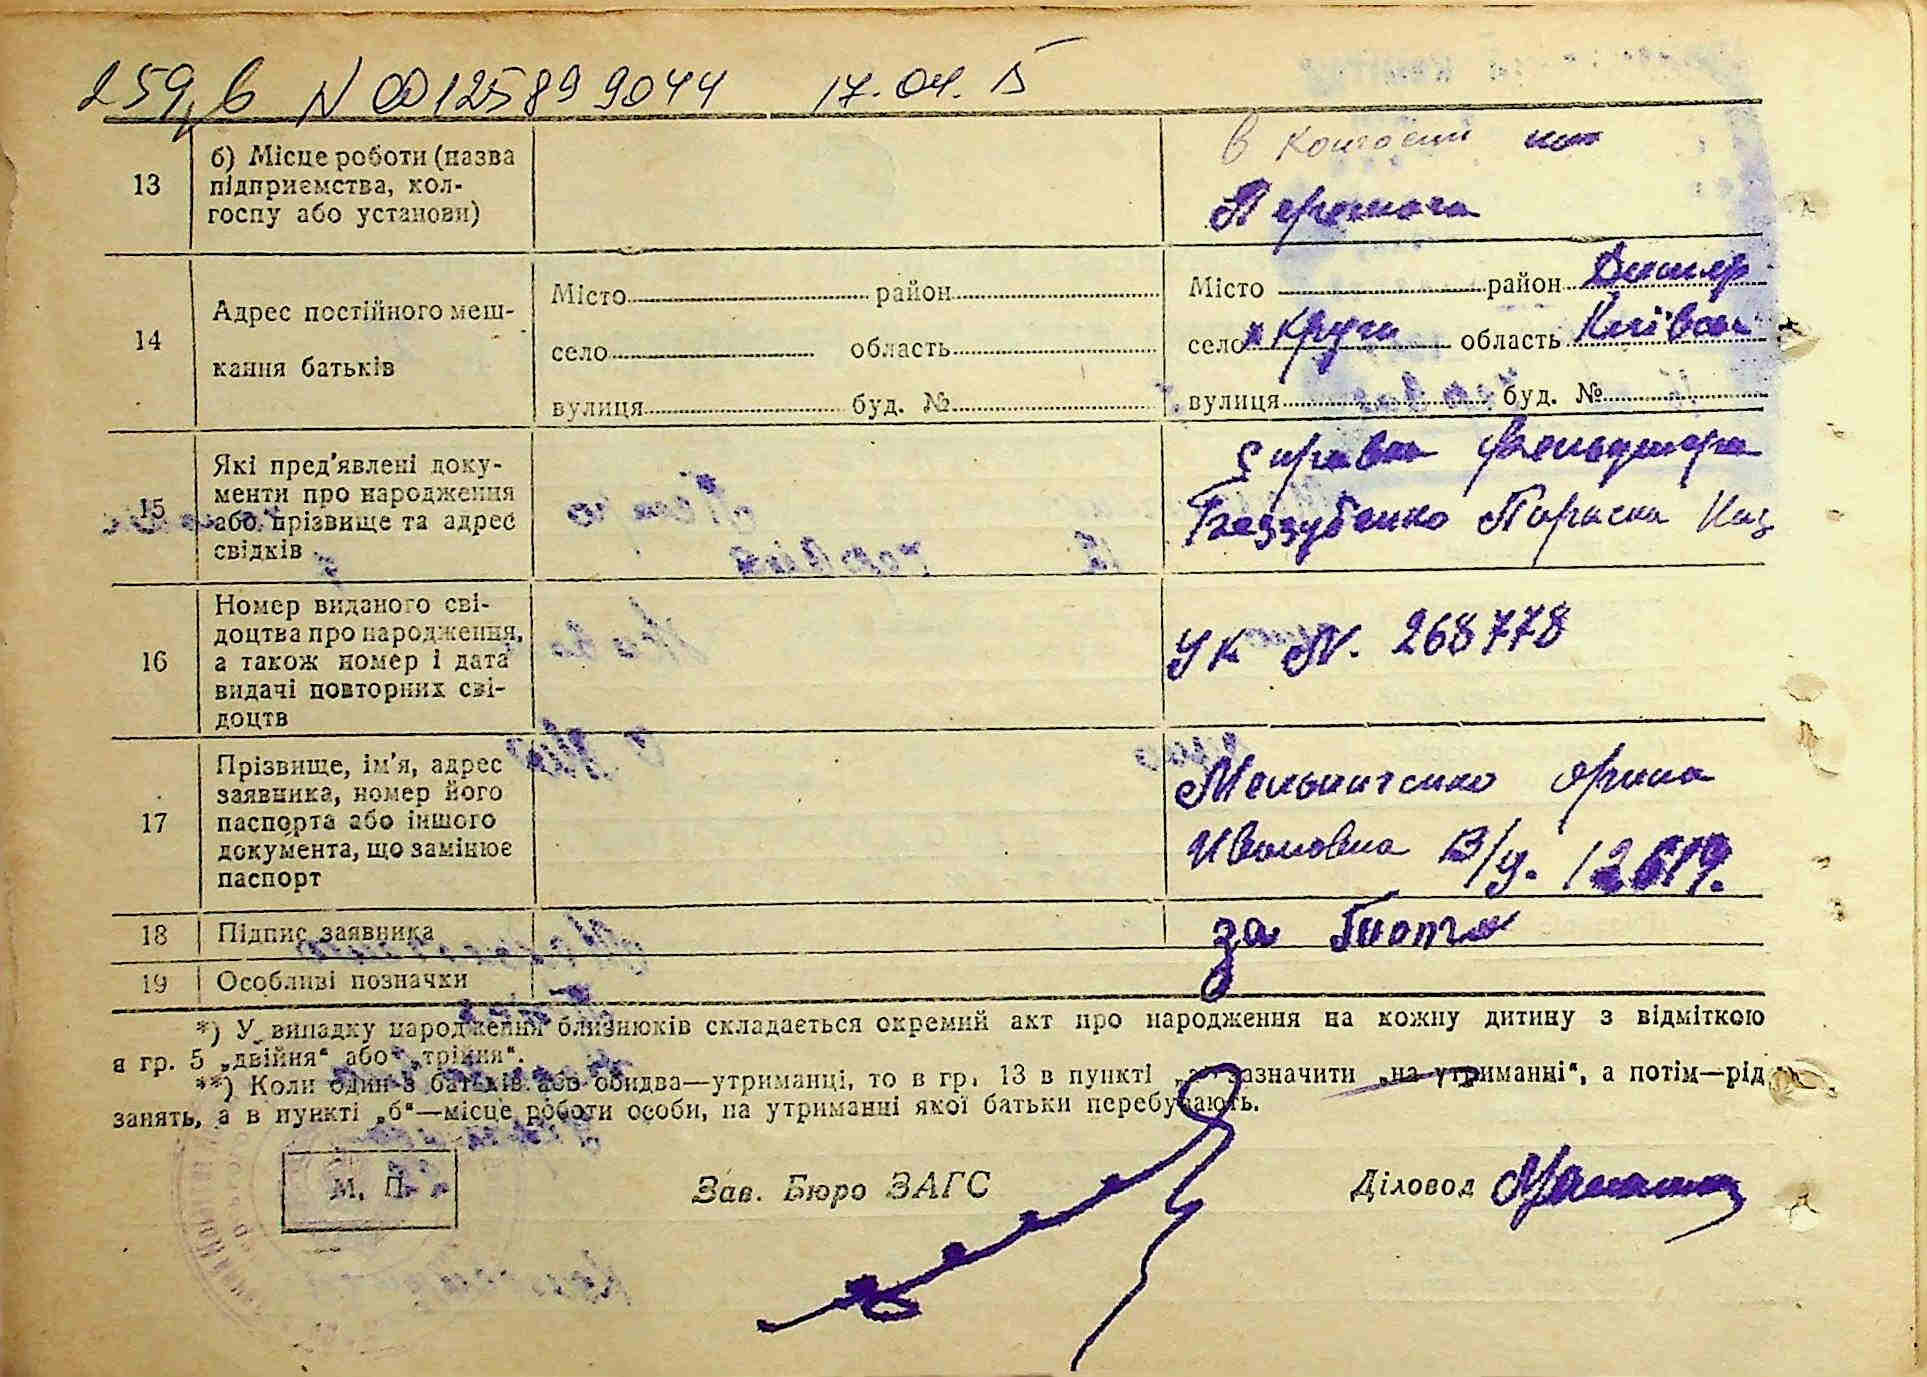 259,6 N 00125899044 17.04.15
13 б) Місце роботи (назва підприємства, кол-
госпу або установи)
в
Перемога
14 Адрес постійного меш-
кання батьків
Місто район
село область
вулиця буд. №
Місто район Димер
село Круги область Київськ
вулиця буд. №
15 Які пред'явлені доку-
менти про народження
або прізвище та адрес
свідків
справка фельдшера
Беззубенко Параска
16 Номер виданого сві-
доцтва про народження,
а також номер і дата
видачі повторних сві-
доцтв
УК N. 268778
17 Прізвище, ім'я, адрес
заявника, номер його
паспорта або іншого
документа, що замінює
паспорт
Мельниченко Орина
Ивановна 12619.
18 Підпис заявника
за
19 Особливі позначки
*) У випадку народження близнюків складається окремий акт про народження на кожну дитину з відміткою
в гр. 5 „двійня“ або „трійня“.
**) Коли один з батьків або обидва—утриманці, то в гр. 13 в пункті „а“ зазначити „на утриманні“, а потім—рід
занять, а в пункті „б“—місце роботи особи, на утриманні якої батьки перебувають.
М. П.
Зав. Бюро ЗАГС
Діловод